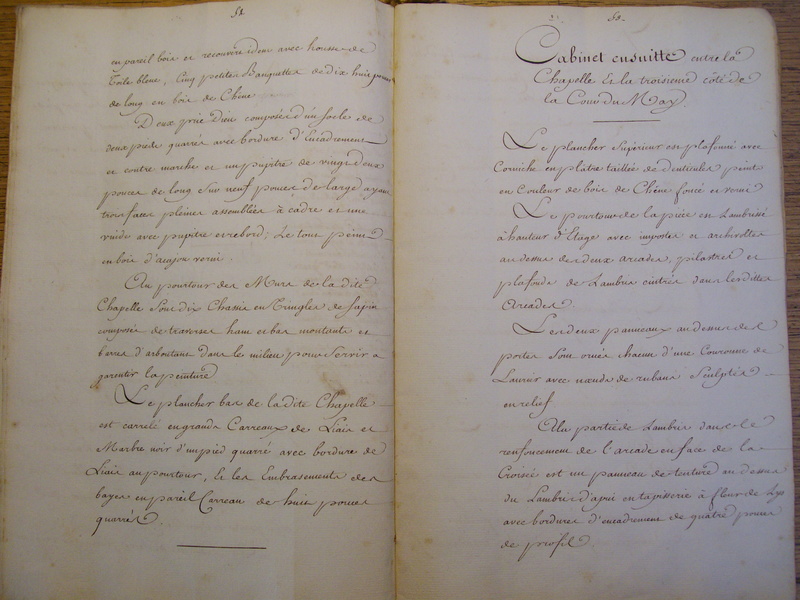 51
en pareil bois et recouvers idem avec housse de
Toile bleue, Cinq petites Banquettes de dix huit pouces
de long en bois de Chêne
Deux prie Dieu composés d'un socle de
deux pieds quarrés avec bordure d'Encadrement
et contre marche et un pupitre de vingt deux
pouces de long sur neuf pouces de large ayant
trois faces pleines assemblées à cadre et une
vuide avec pupitre et rebord; Le tout peint
en bois d'acajou verni.
Au pourtour des Murs de la dite
Chapelle sont dix Chassis en Tringles de sapin
composés de traverses haut et bas montants et
barres d'arboutans dans le milieu pour servir à
garentir la peinture
Le plancher bas de la dite Chapelle
est carrelé en grands Carreaux de Liais et
Marbre noir d'un pied quarré avec bordure de
Liais au pourtour, Et les Embrasements des
bayes en pareil Carreau de huit pouces
quarrés.
52.
Cabinet ensuitte entre la
Chapelle Et la troisieme côté de
la Cour du May.
Le plancher Supérieur est plafonné avec
Corniche en plâtre taillée de denticules peint
en Couleur de bois de Chêne foncé et verni
Le pourtour de la pièce est Lambrissé
à hauteur d'Etage avec impostes et archivoltes
au dessus des deux arcades, pilastres et
plafonds de Lambris cintrés dans lesdittes
Arcades.
Les deux panneaux au dessus des
portes sont ornés chacun d'une Couronne de
Laurier avec nœuds de rubans Sculptés
en relief
Au partie de Lambris dans le
renfoncement de l'arcade en face de la
Croisée est un panneau de tenture au dessus
du Lambris d'apui en tapisserie à fleur de Lys
avec bordures d'encadrement de quatre pouces
de profil.